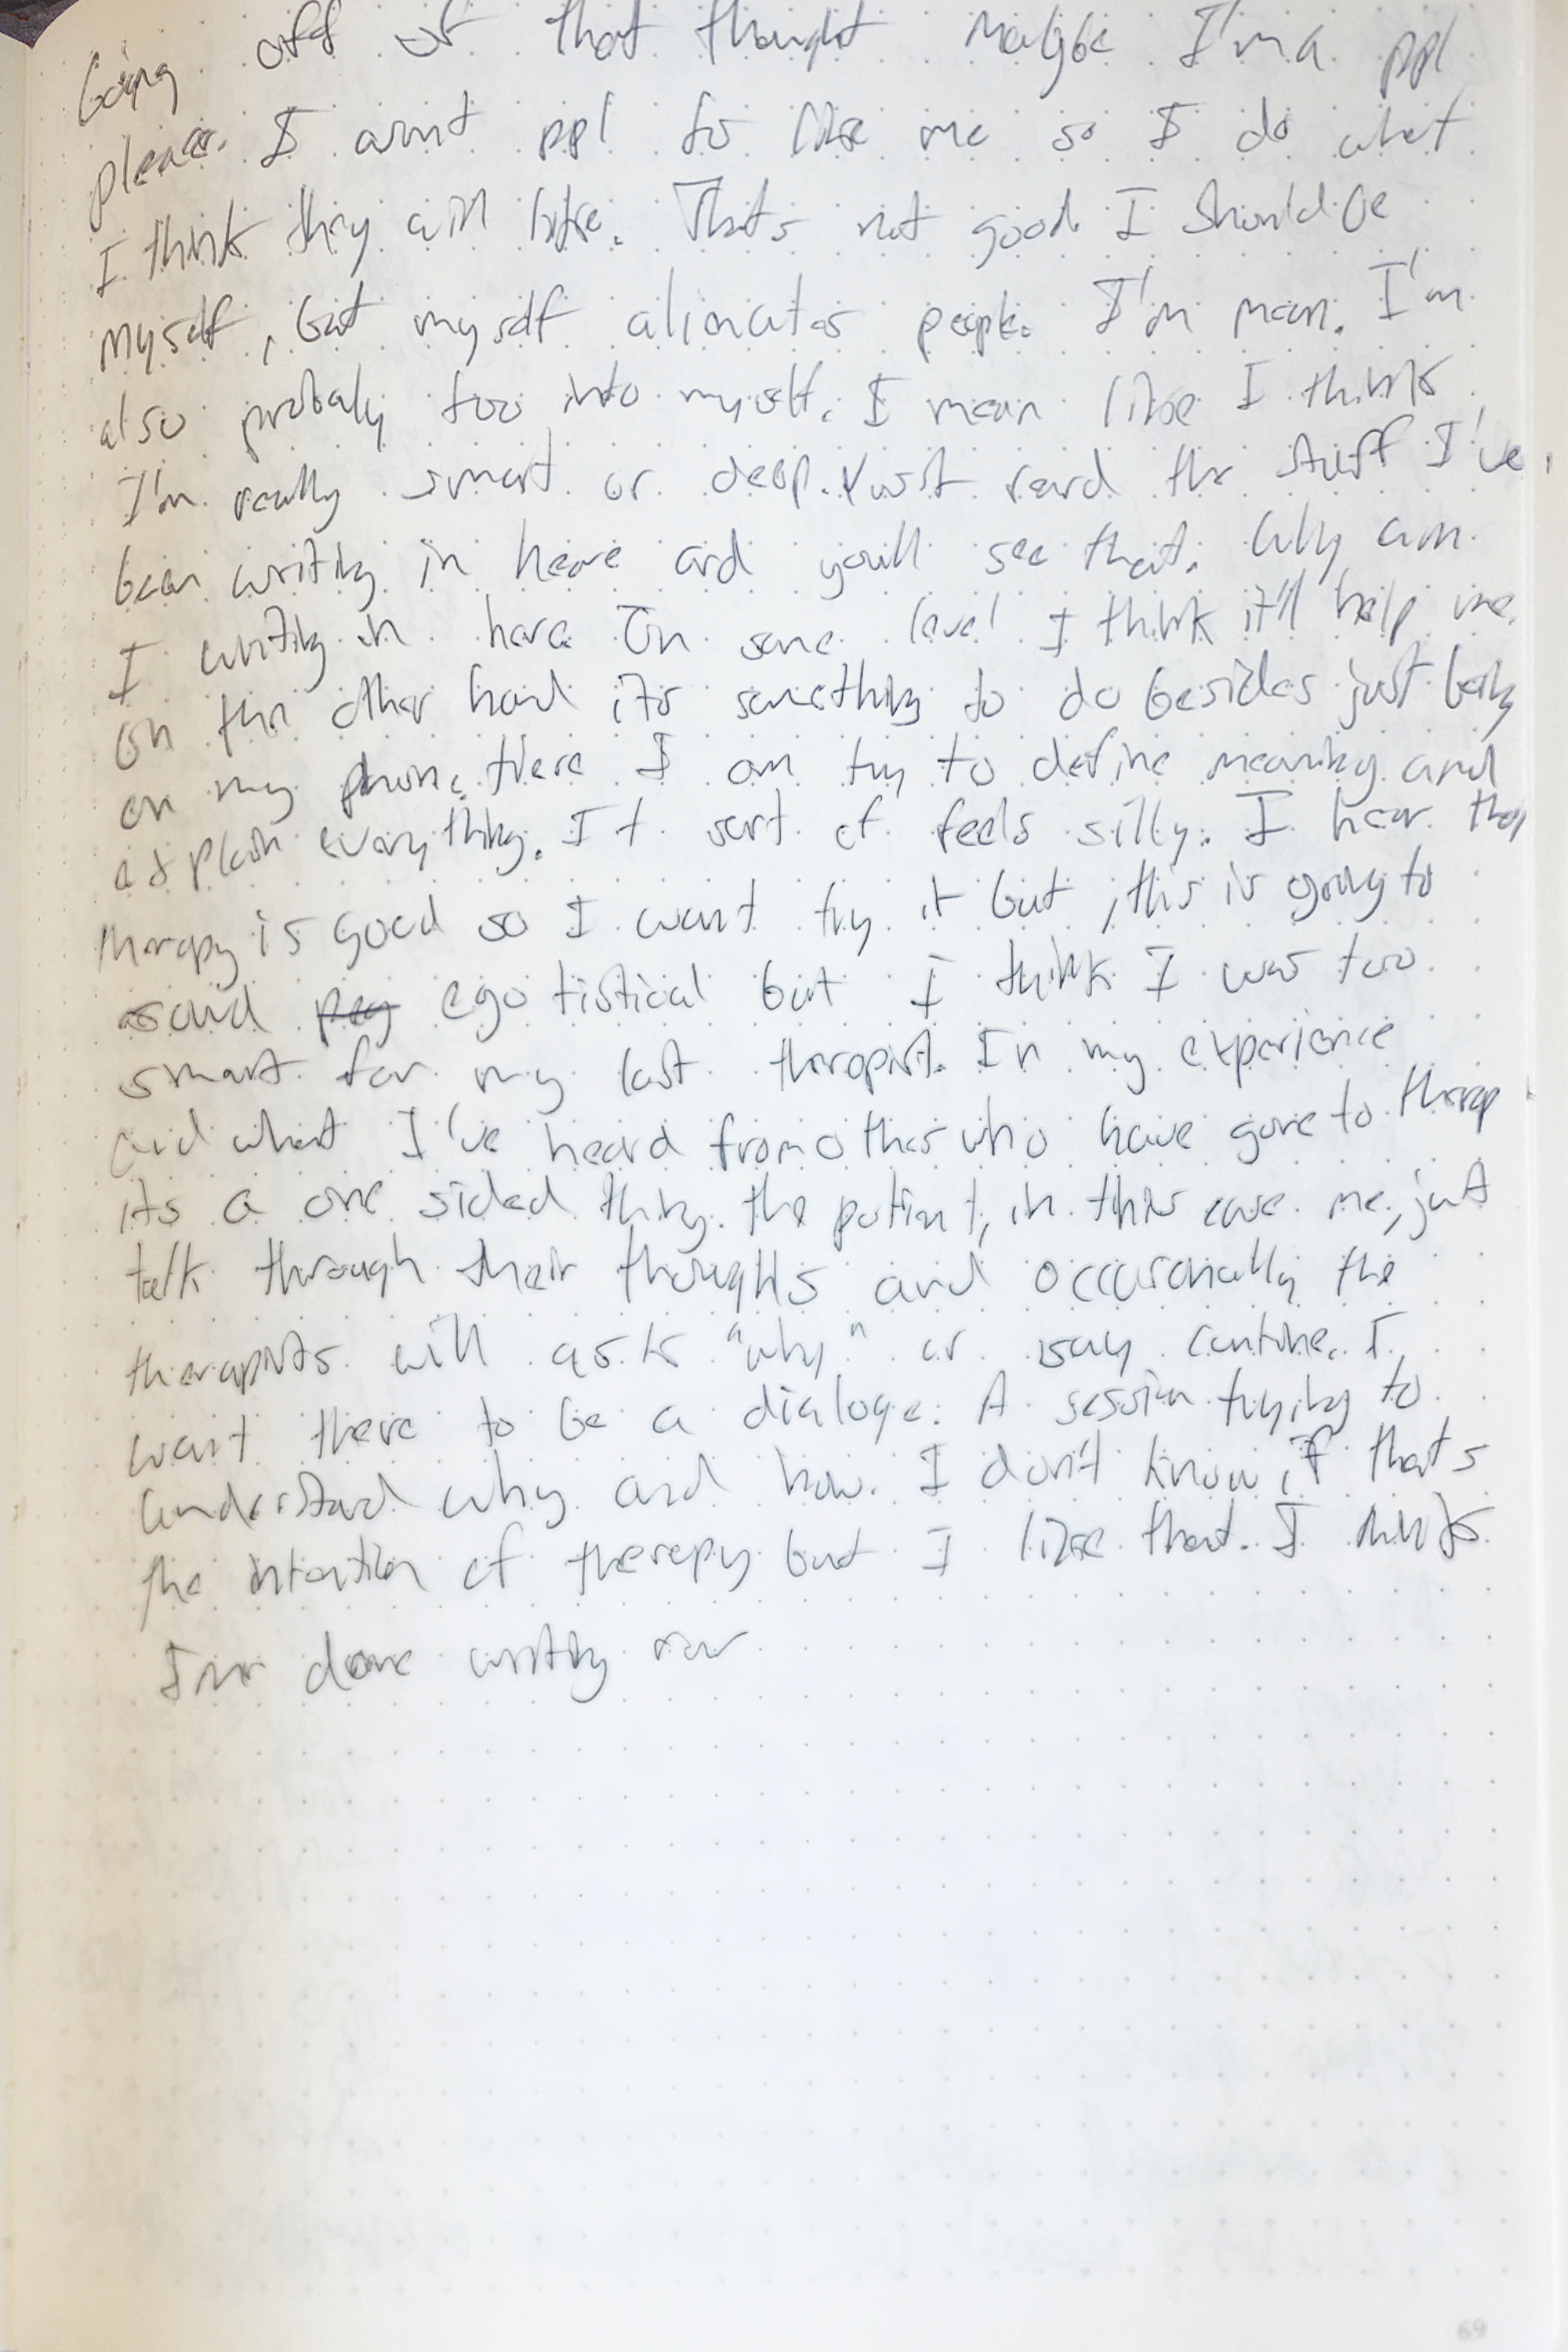 Going off of that thought Maybe I'm a ppl
pleaser. I want ppl to like me so I do what
I think they will like. Thats not good I should be
myself, but myself alienates people. I'm mean. I'm
also probaly too into myself. I mean like I think
I'm really smart or deep. Just read the stuff I've
been writing in heare and youll see that. Why am
I writing in here On some level I think it'll help me.
On the other hand its something to do besides just being
on my phone. Here I am try to define meaning and
explain everything. It sort of feels silly. I hear that
therapy is good so I want try it but, this is going to
sound egotistical but I think I was too
smart for my last therapist. In my experience
and what I've heard from others who have gone to therap
its a one sided thing. the patient, in this case me, just
talk through their thoughts and occasionally the
therapists will ask "why" or say continue. I
want there to be a dialoge. A session trying to
understand why and how. I don't know if thats
the intention of therepy but I like that. I think
I'm done writing now
69